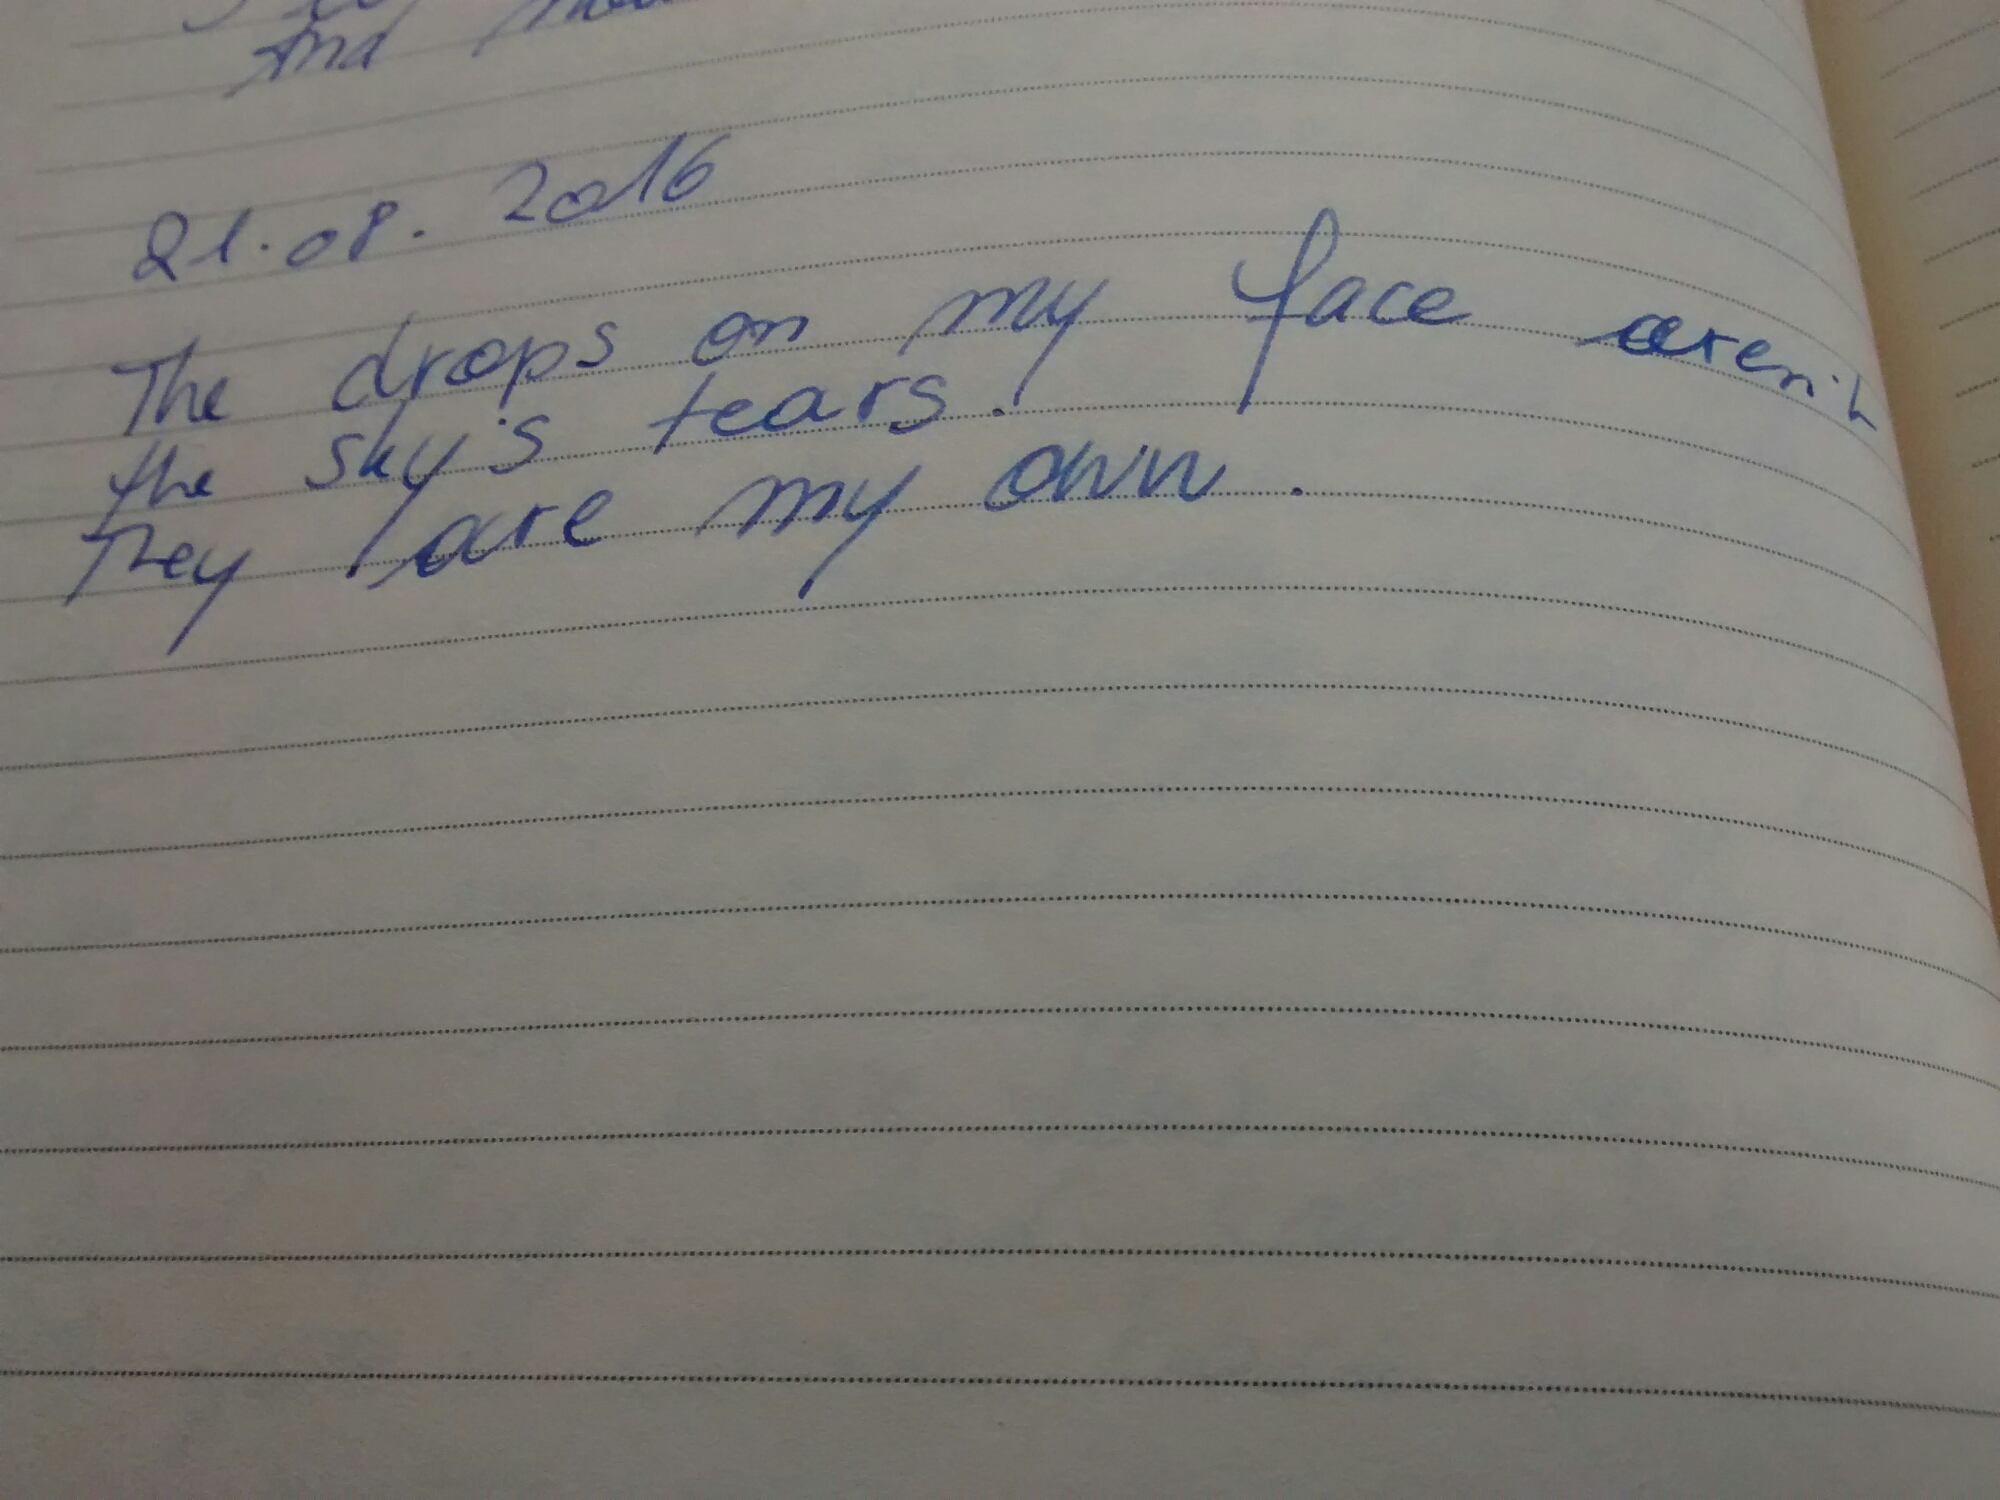 And
21.08.2016
The drops on my face aren't
the sky's tears.
They are my own.